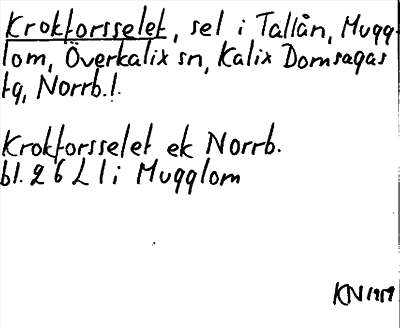 Krokforsselet, sel i Tallån, Mugg-
lom, Överkalix sn, Kalix Domsagas
tg, Norrb.l.
Krokforsselet ek Norrb.
bl. 26 L l i Mugglom
KN 1959